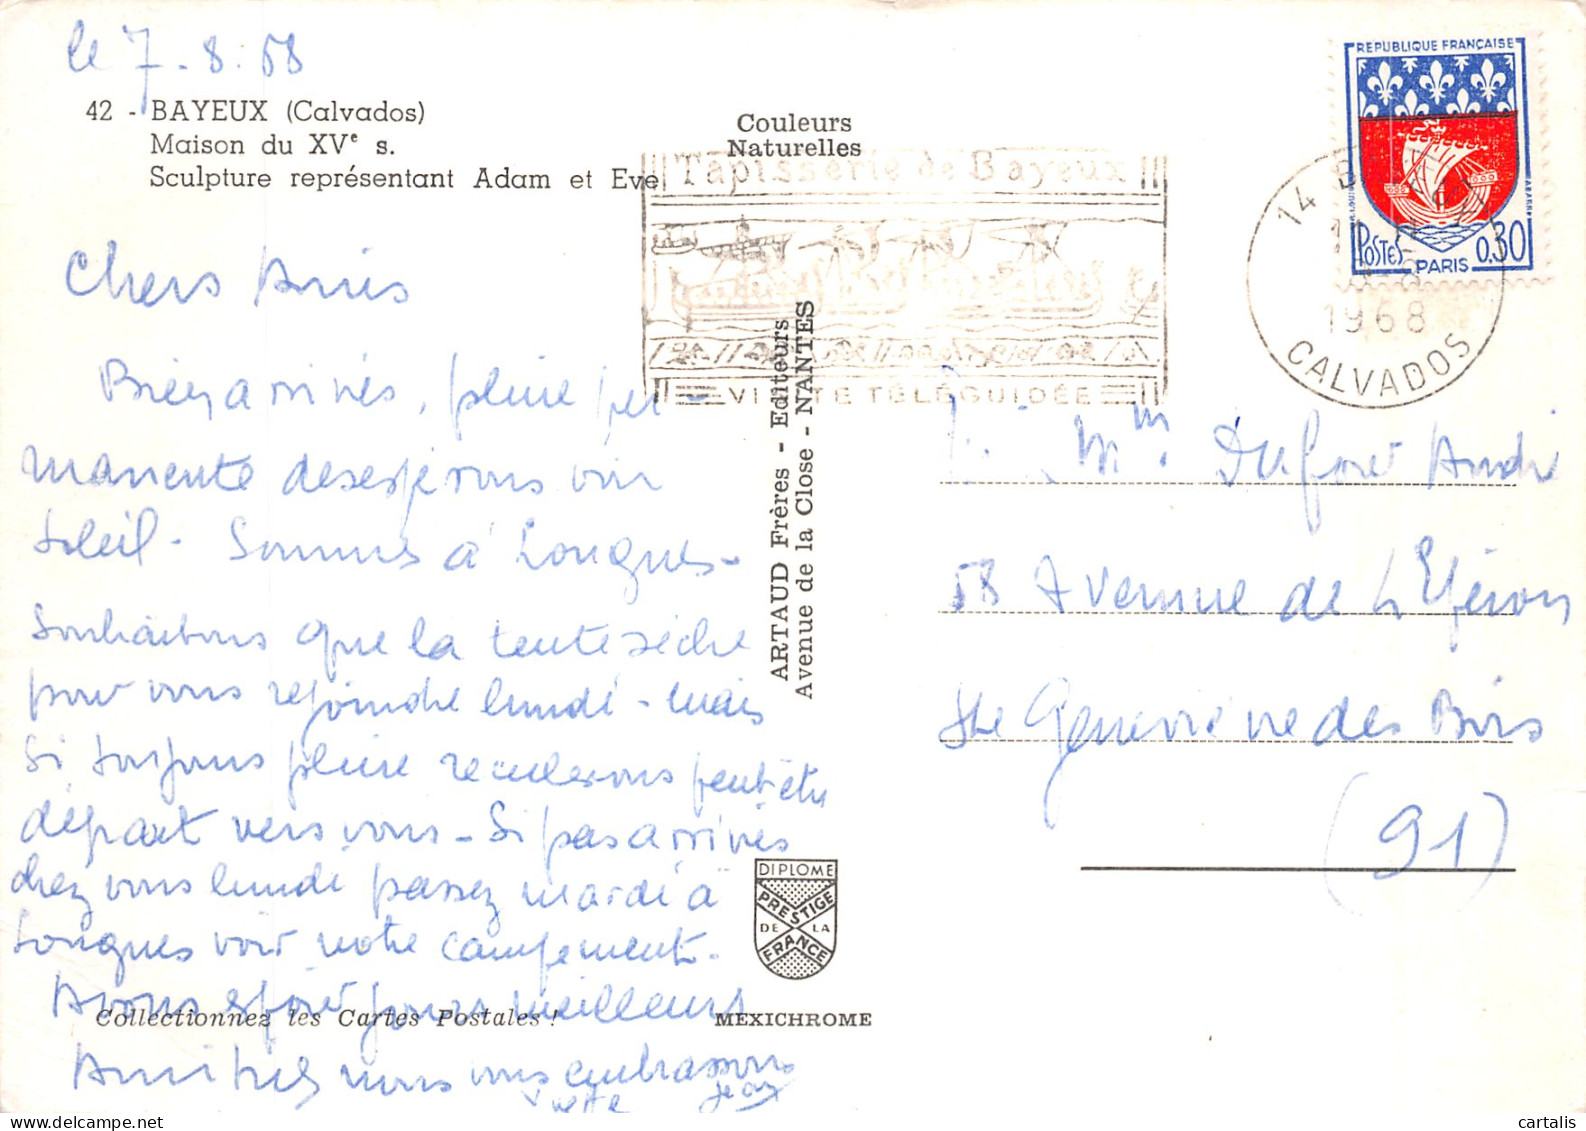 le 7-8-68
42 - BAYEUX (Calvados)
Maison du XVe s.
Sculpture représentant Adam et Eve
Couleurs
Naturelles
Tapisserie de Bayeux
VISITE TÉLÉGUIDÉE
REPUBLIQUE FRANÇAISE
POSTES
PARIS
0,30
14
1968
CALVADOS
Chers Amis
Bien arrivés, pluie per-
manente desespérons voir
soleil - Sommes à Longues -
Souhaitons que la tente sèche
pour vous rejoindre lundi - mais
Si toujours pluie reculerons peut être
départ vers vous - Si pas arrivés
chez vous lundi passez mardi à
Longues voir notre campement.
Avons espoir jours meilleurs
Amitiés nous vous embrassons
Jean
ARTAUD Frères - Editeurs
Avenue de la Close - NANTES
Mm Dufour André
58 Avenue de L'
Ste Geneviève des Bois
(91)
DIPLOME
PRESTIGE
DE LA
FRANCE
Collectionnez les Cartes Postales !
MEXICHROME
cartalis